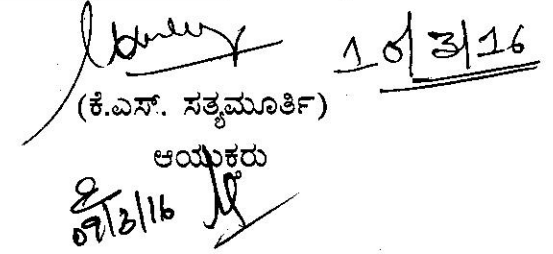 10/3/16
(ಕೆ.ಎಸ್. ಸತ್ಯಮೂರ್ತಿ)
ಆಯುಕ್ತರು
09/3/16